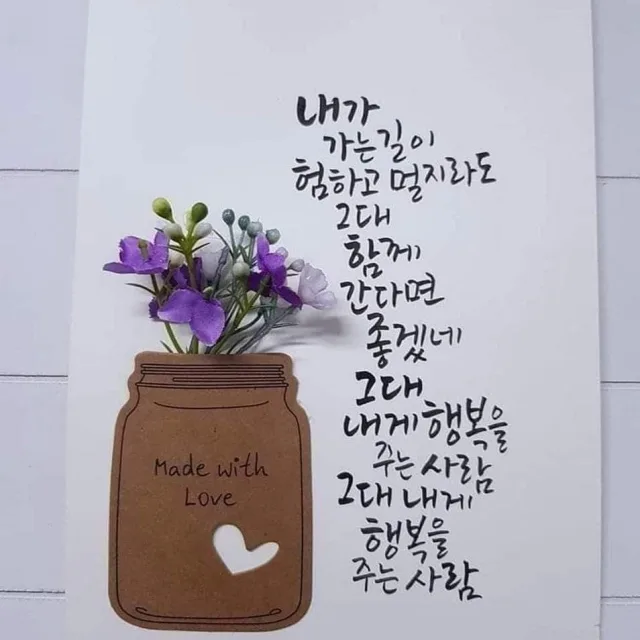 내가
가는길이
험하고 멀지라도
그대
함께
간다면
좋겠네
그대
내게 행복을
주는 사람
그대 내게
행복을
주는 사람
Made with
Love